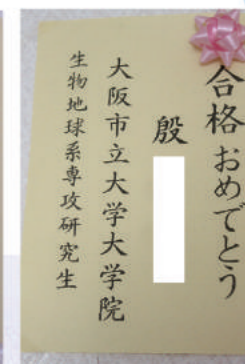 合格おめでとう
殷
大阪市立大学大学院
生物地球系専攻研究生